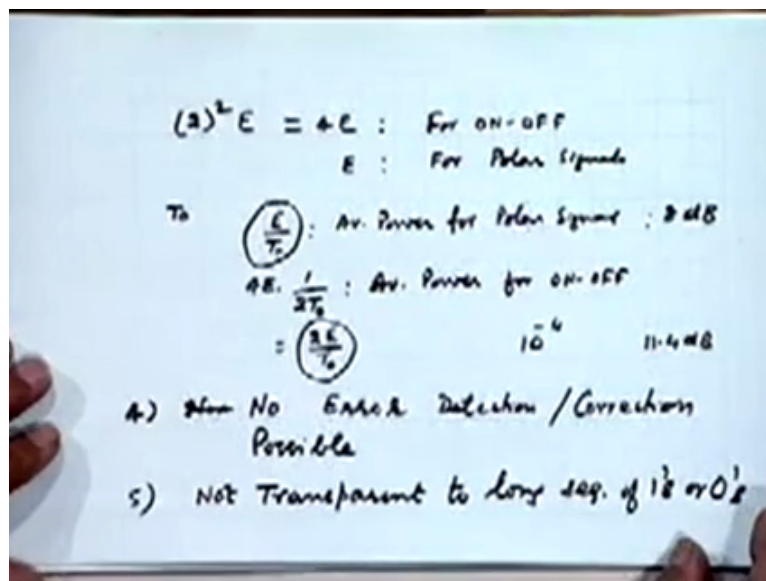 (2)² E = 4E : For ON-OFF
E : For Polar Signals
T₀ E/T₀ : Av. Power for Polar Signal : 8 dB
4E. 1/2T₀ : Av. Power for ON-OFF
= 2E/T₀ 10⁻⁴ 11.4 dB
4) No Error Detection / Correction
Possible
5) Not Transparent to long seq. of 1's or 0's